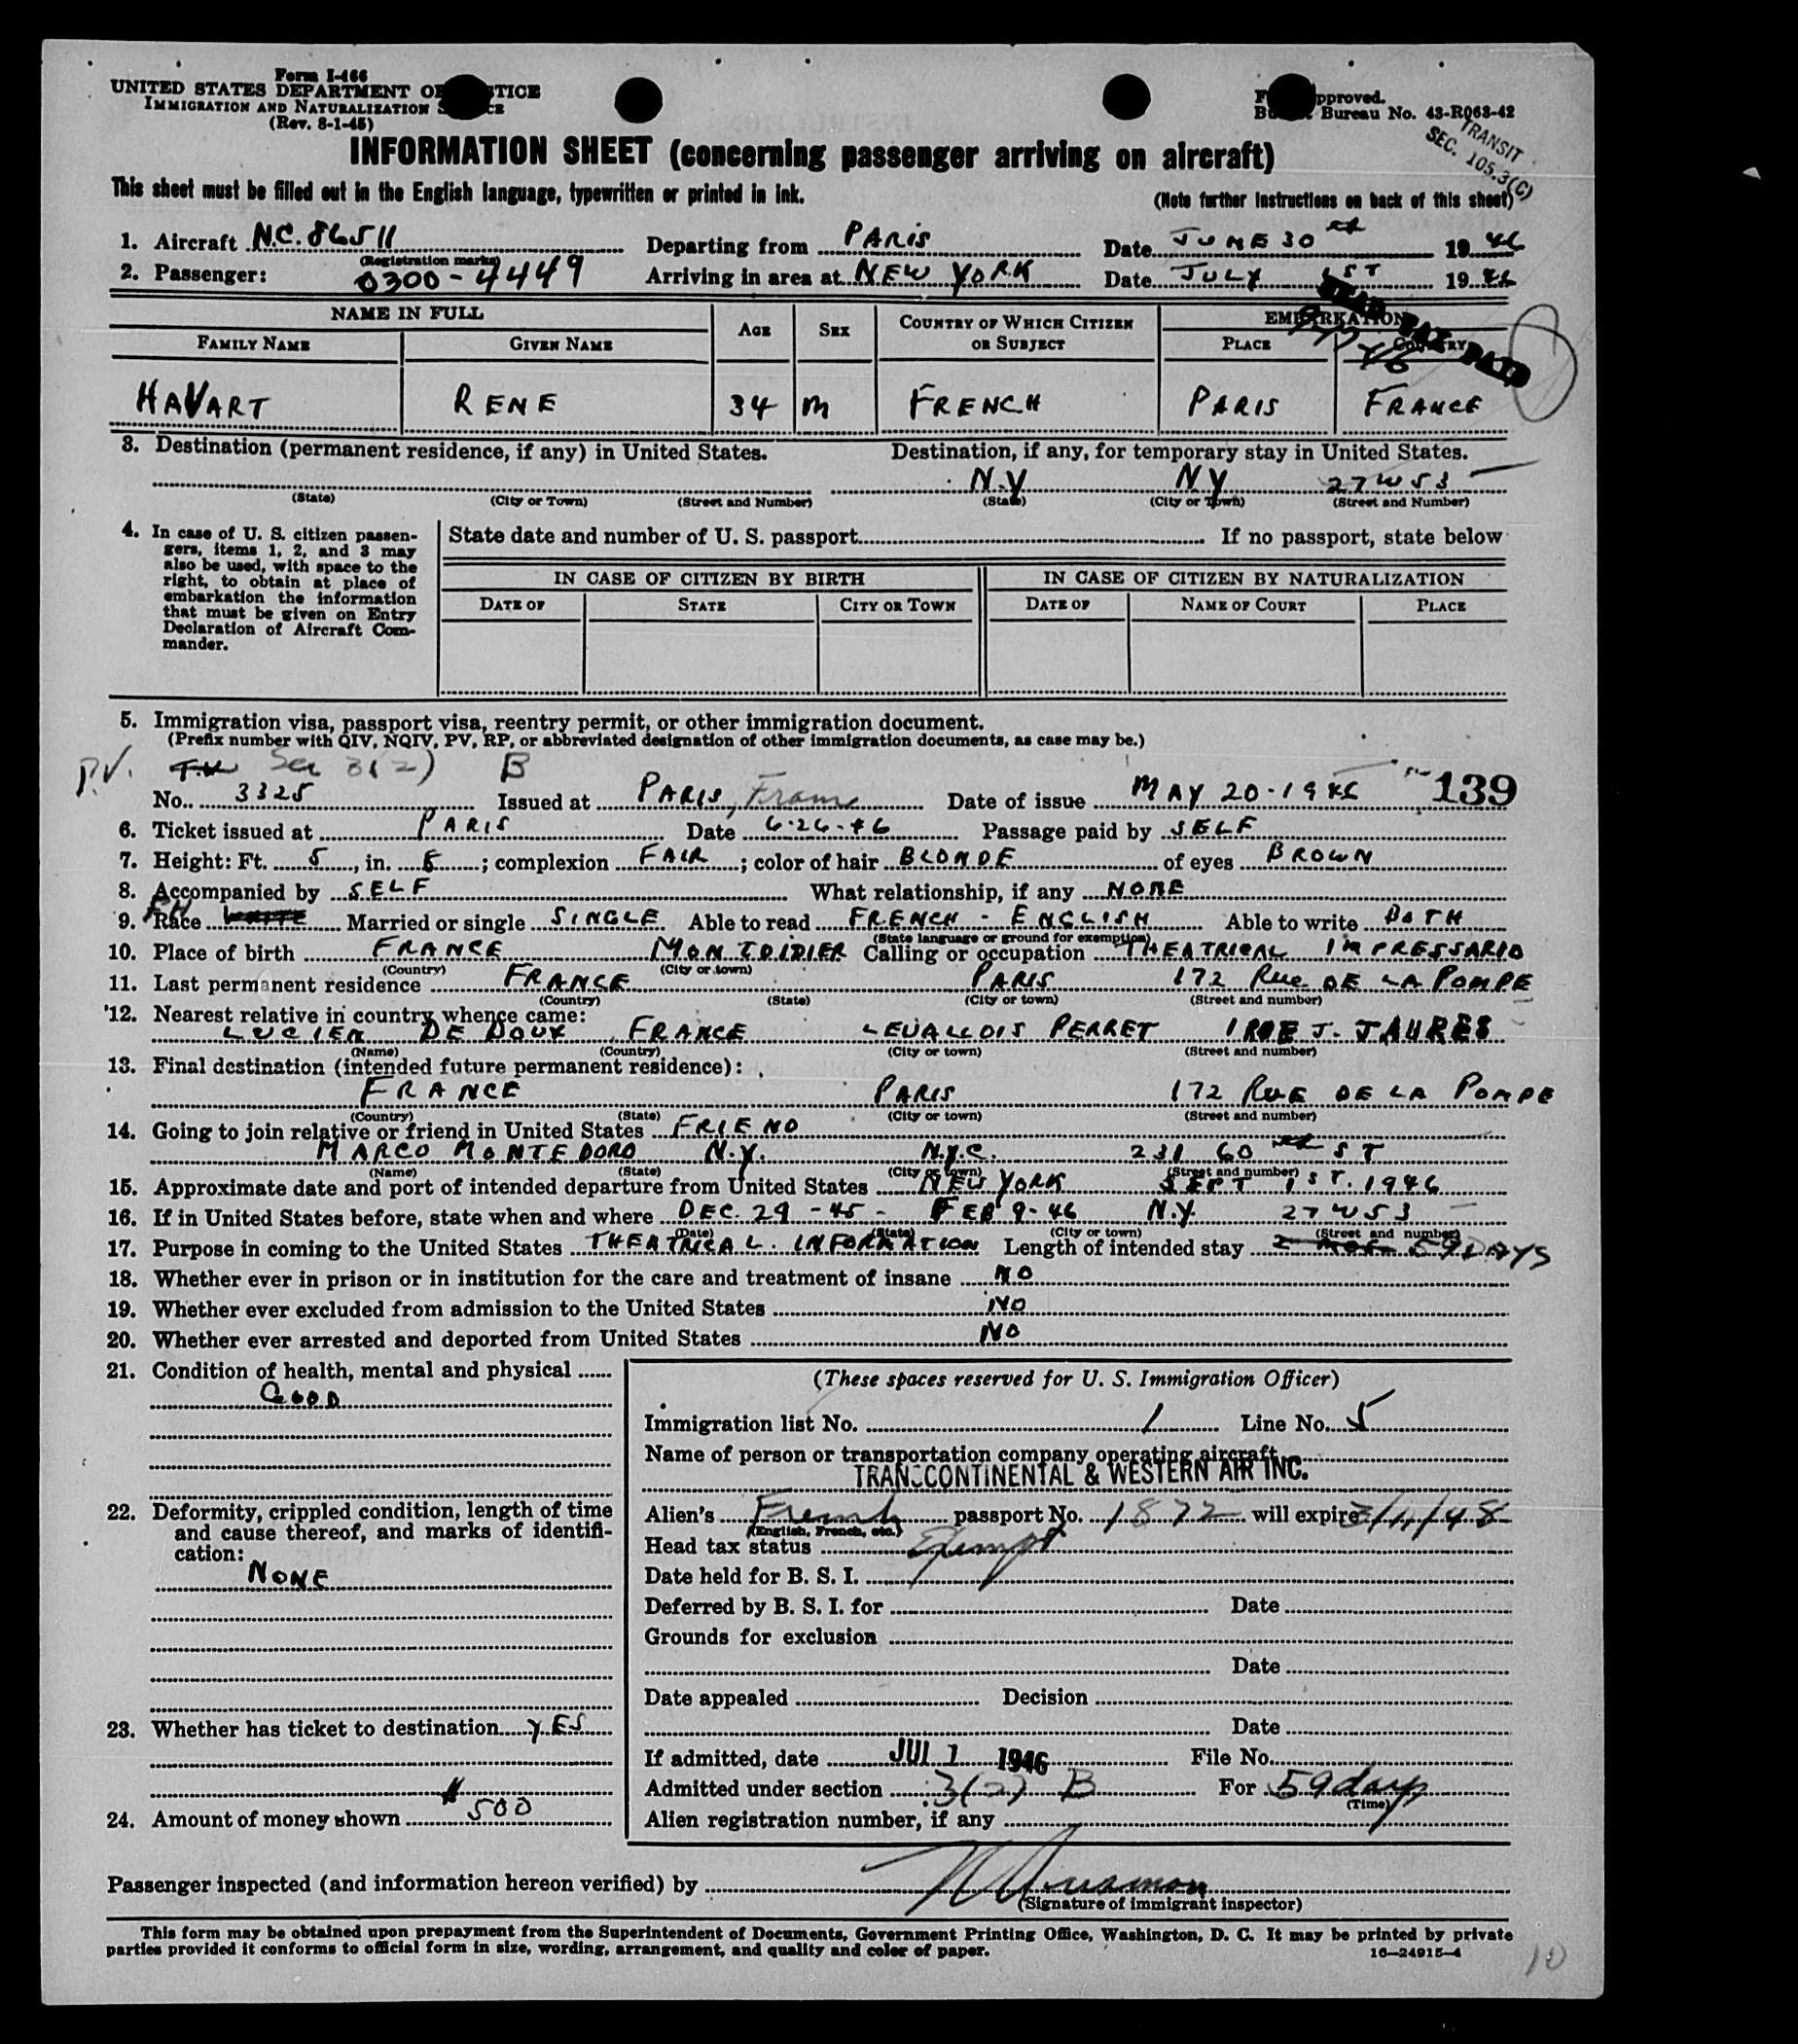 Form I-466
UNITED STATES DEPARTMENT OF JUSTICE
IMMIGRATION AND NATURALIZATION SERVICE
(Rev. 8-1-45)
Form approved.
Budget Bureau No. 43-R063-42
TRANSIT
SEC. 105.3(C)
INFORMATION SHEET (concerning passenger arriving on aircraft)
This sheet must be filled out in the English language, typewritten or printed in ink.
(Note further instructions on back of this sheet)
1. Aircraft N.C. 86511 Departing from PARIS Date JUNE 30 1946
(Registration marks)
2. Passenger: 0300-4449 Arriving in area at NEW YORK Date JULY 1ST 1946
NAME IN FULL AGE SEX COUNTRY OF WHICH CITIZEN OR SUBJECT EMBARKATION
FAMILY NAME GIVEN NAME PLACE COUNTRY
HAVART RENE 34 M FRENCH PARIS FRANCE
3. Destination (permanent residence, if any) in United States. Destination, if any, for temporary stay in United States.
N.Y NY 27 W 53
(State) (City or Town) (Street and Number) (State) (City or Town) (Street and Number)
4. In case of U. S. citizen passengers, items 1, 2, and 3 may also be used, with space to the right, to obtain at place of embarkation the information that must be given on Entry Declaration of Aircraft Commander.
State date and number of U. S. passport If no passport, state below
IN CASE OF CITIZEN BY BIRTH IN CASE OF CITIZEN BY NATURALIZATION
DATE OF STATE CITY OR TOWN DATE OF NAME OF COURT PLACE
5. Immigration visa, passport visa, reentry permit, or other immigration document.
(Prefix number with QIV, NQIV, PV, RP, or abbreviated designation of other immigration documents, as case may be.)
P.V. Sec 3(2) B
No. 3325 Issued at PARIS, France Date of issue MAY 20-1946 139
6. Ticket issued at PARIS Date 6-26-46 Passage paid by SELF
7. Height: Ft. 5, in. 5; complexion FAIR; color of hair BLONDE of eyes BROWN
8. Accompanied by SELF What relationship, if any NONE
9. Race WHITE FH Married or single SINGLE Able to read FRENCH - ENGLISH Able to write BOTH
(State language or ground for exemption)
10. Place of birth FRANCE MONTDIDIER Calling or occupation THEATRICAL IMPRESSARIO
(Country) (City or town)
11. Last permanent residence FRANCE PARIS 172 RUE DE LA POMPE
(Country) (State) (City or town) (Street and number)
12. Nearest relative in country whence came:
LUCIEN DE DOUX FRANCE LEVALLOIS PERRET 1 RUE J. JAURES
(Name) (Country) (City or town) (Street and number)
13. Final destination (intended future permanent residence):
FRANCE PARIS 172 RUE DE LA POMPE
(Country) (State) (City or town) (Street and number)
14. Going to join relative or friend in United States FRIEND
MARCO MONTEDORO N.Y. N.Y.C. 231 60 ST
(Name) (State) (City or town) (Street and number)
15. Approximate date and port of intended departure from United States NEW YORK SEPT 1ST. 1946
16. If in United States before, state when and where DEC. 29 - 45 - FEB 9-46 N.Y. 27 W 53
(Date) (State) (City or town) (Street and number)
17. Purpose in coming to the United States THEATRICAL INFORMATION Length of intended stay 2 MOS 59 DAYS
18. Whether ever in prison or in institution for the care and treatment of insane NO
19. Whether ever excluded from admission to the United States NO
20. Whether ever arrested and deported from United States NO
21. Condition of health, mental and physical
GOOD
22. Deformity, crippled condition, length of time and cause thereof, and marks of identification:
NONE
23. Whether has ticket to destination YES
24. Amount of money shown $ 500
(These spaces reserved for U. S. Immigration Officer)
Immigration list No. 1 Line No. 5
Name of person or transportation company operating aircraft
TRANSCONTINENTAL & WESTERN AIR INC.
Alien's French passport No. 1872 will expire 3/11/48
(English, French, etc.)
Head tax status Exempt
Date held for B. S. I.
Deferred by B. S. I. for Date
Grounds for exclusion
Date
Date appealed Decision
Date
If admitted, date JUL 1 1946 File No.
Admitted under section 3(2) B For 59 days
(Time)
Alien registration number, if any
Passenger inspected (and information hereon verified) by
(Signature of immigrant inspector)
This form may be obtained upon prepayment from the Superintendent of Documents, Government Printing Office, Washington, D. C. It may be printed by private
parties provided it conforms to official form in size, wording, arrangement, and quality and color of paper.
16—24915-4
10